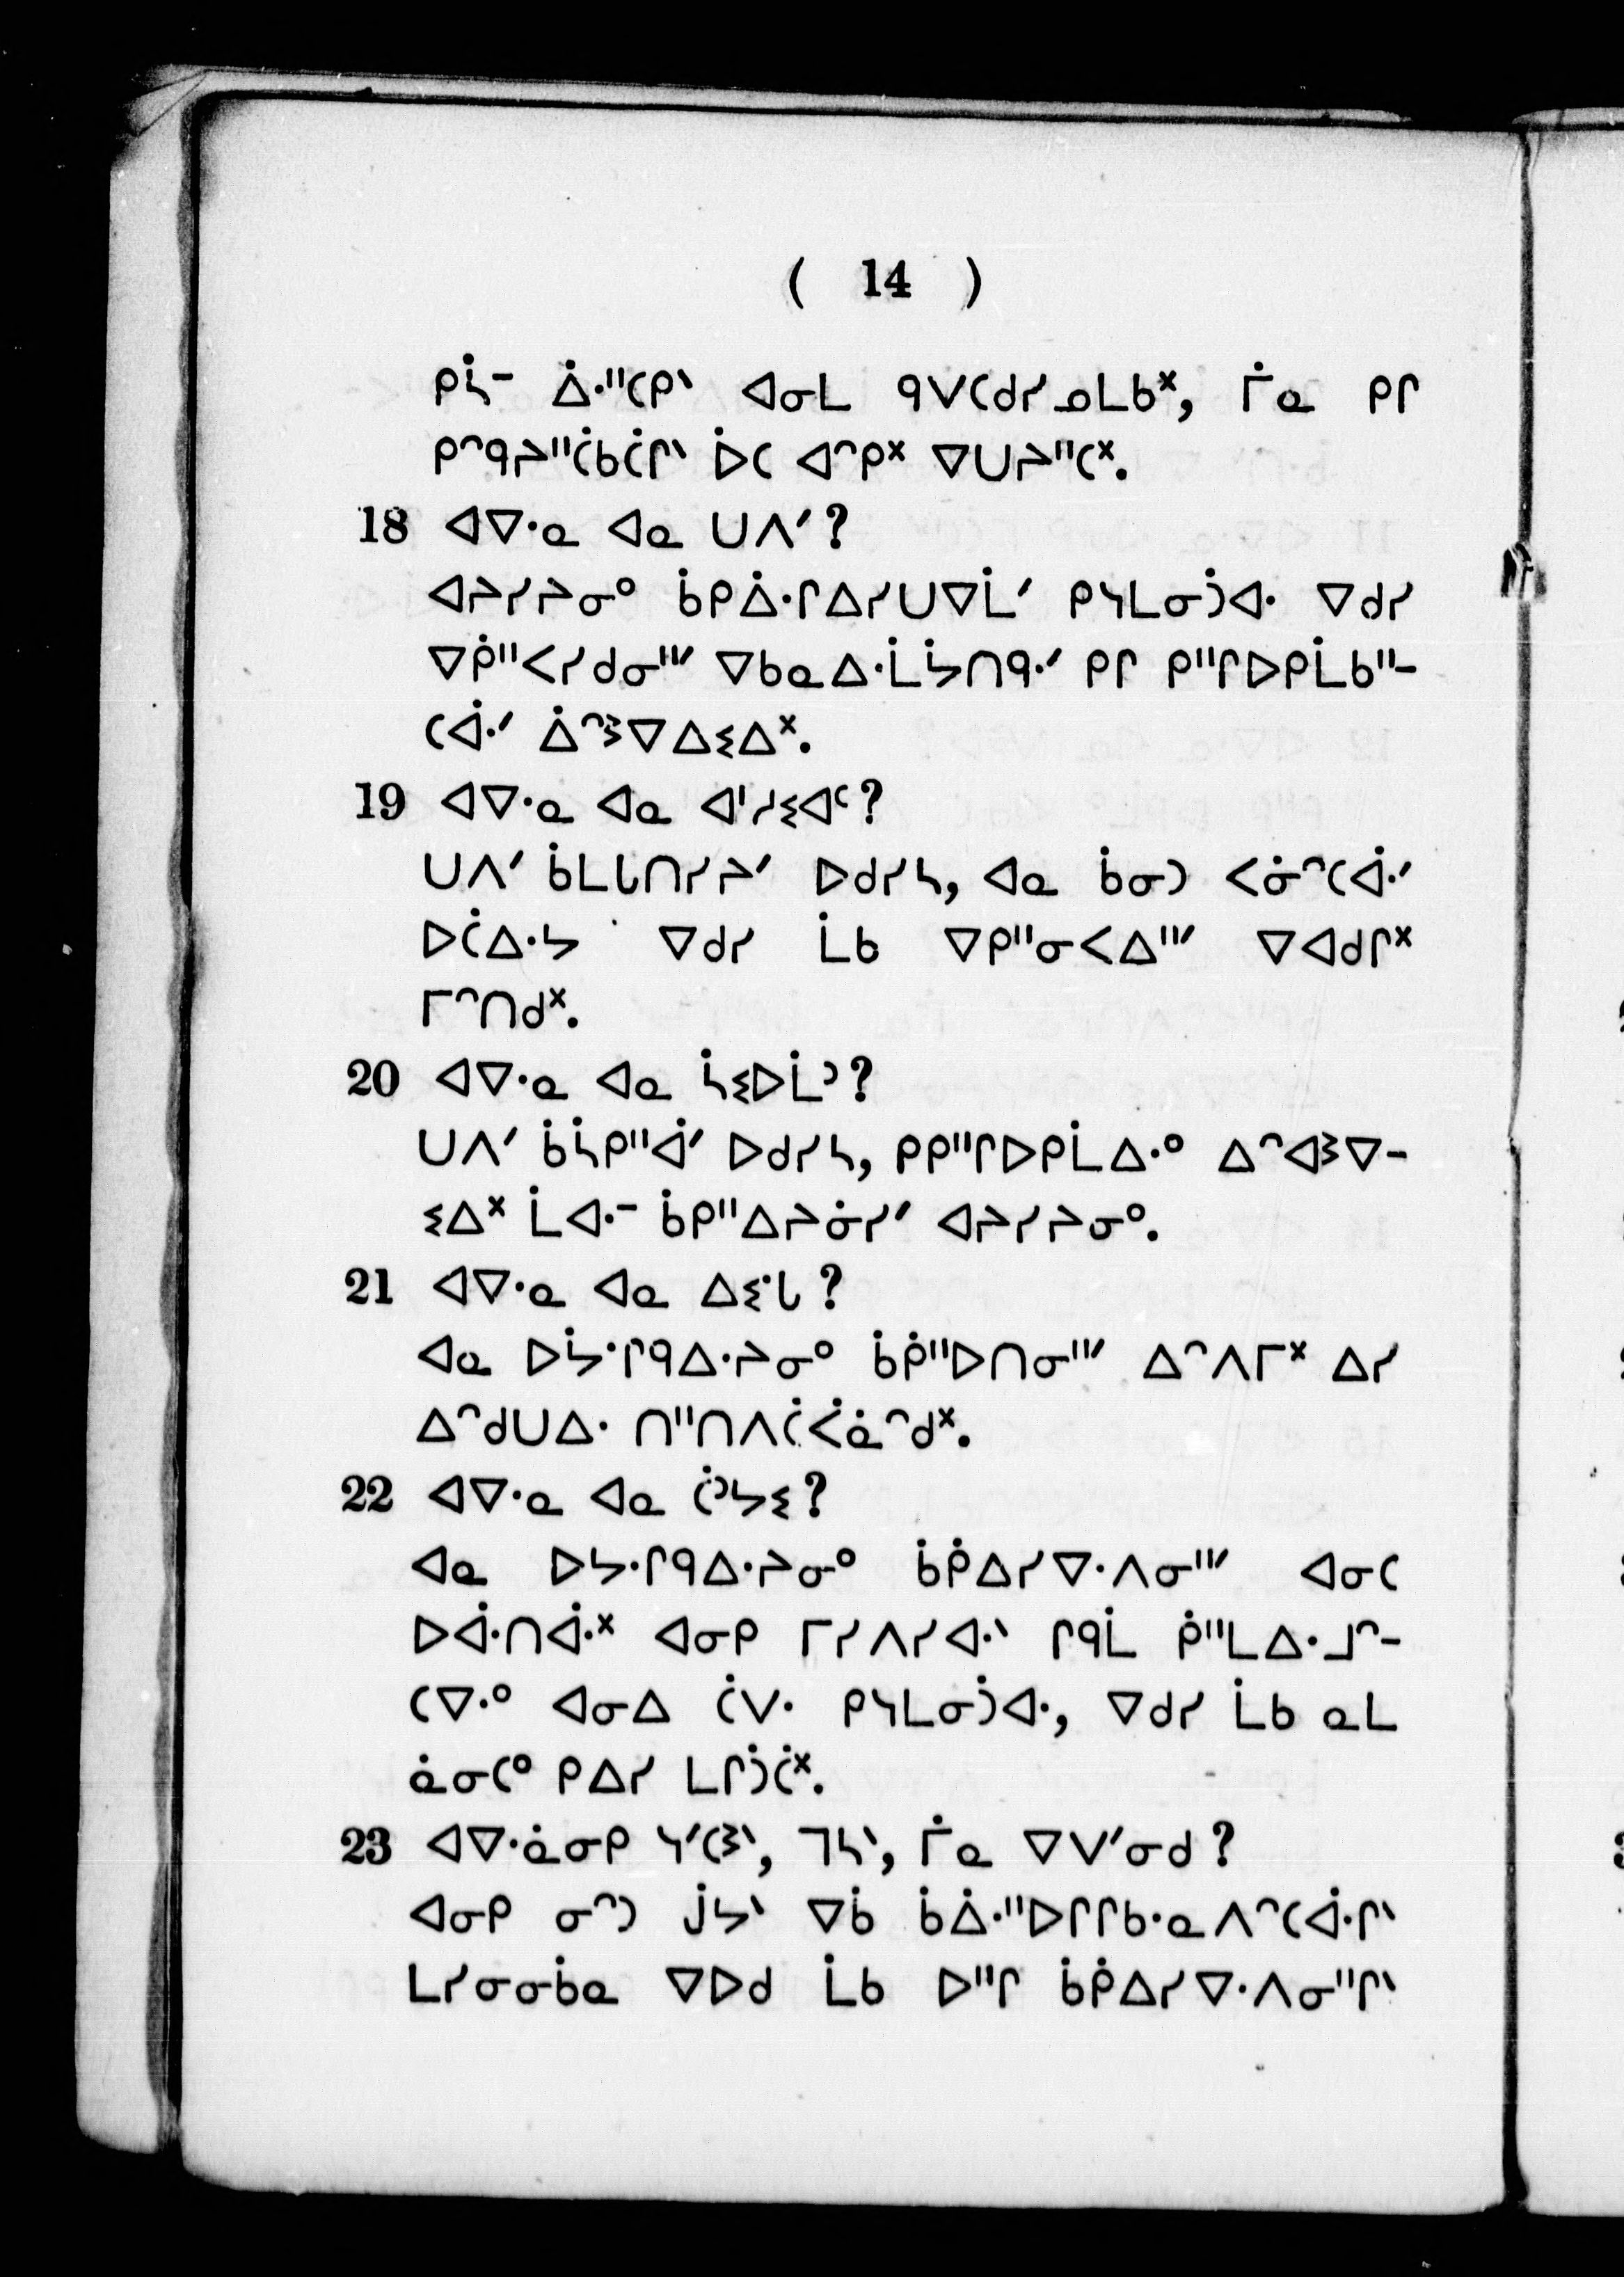 ( 14 )
ᑭᓵᐨ ᐄᐧᐦᑕᑭᐠ ᐊᓂᒪ ᑫᐯᑕᑯᓯᓄᒪᑲᕽ, ᒦᓇ ᑭᒋ
ᑭᐢᑫᔨᐦᑖᑲᑖᒋᐠ ᐆᑕ ᐊᐢᑭᕽ ᐁᑌᔨᐦᑕᕽ.
18 ᐊᐁᐧᓇ ᐊᓇ ᑌᐱᐟ?
ᐊᔨᓯᔨᓂᐤ ᑳᑭᐄᐧᒋᐃᓯᑌᐁᒫᐟ ᑭᓴᒪᓂᑑᐊᐧ ᐁᑯᓯ
ᐁᑮᐦᐸᓯᑯᓂᐦᐟ ᐁᑲᓇᐃᐧᒫᔭᑎᑫᐧᐟ ᑭᒋ ᑭᐦᒋᐅᑭᒫᑲᐦ-
ᑕᐋᐧᐟ ᐄᐢᕒᐁᐃᓬᐃᕽ.
19 ᐊᐁᐧᓇ ᐊᓇ ᐊᑊᓱᓬᐊᑦ?
ᑌᐱᐟ ᑳᒪᒐᑎᓯᔨᐟ ᐅᑯᓯᓴ, ᐊᓇ ᑳᓂᑐ ᐸᓃᐢᑕᐋᐧᐟ
ᐅᑖᐃᐧᔭ ᐁᑯᓯ ᒫᑲ ᐁᑭᐦᓂᐸᐃᐦᐟ ᐁᐊᑯᒋᕽ
ᒥᐢᑎᑯᕽ.
20 ᐊᐁᐧᓇ ᐊᓇ ᓵᓬᐅᒫᐣ?
ᑌᐱᐟ ᑳᓵᑭᐦᐋᐟ ᐅᑯᓯᓴ, ᑭᑭᐦᒋᐅᑭᒫᐃᐧᐤ ᐃᐢᐊᕒᐁ-
ᓬᐃᕽ ᒫᐊᐧᐨ ᑳᑭᐦᐃᔨᓃᓯᐟ ᐊᔨᓯᔨᓂᐤ.
21 ᐊᐁᐧᓇ ᐊᓇ ᐃᓬᐧᒐ?
ᐊᓇ ᐅᔮᐧᒋᑫᐃᐧᔨᓂᐤ ᑳᑮᐦᐅᑎᓂᐦᐟ ᐃᐢᐱᒥᕽ ᐃᓯ
ᐃᐢᑯᑌᐃᐧ ᑎᐦᑎᐱᑖᐹᓈᐢᑯᕽ.
22 ᐊᐁᐧᓇ ᐊᓇ ᑖᐣᔭᓬ?
ᐊᓇ ᐅᔭᐧᒋᑫᐃᐧᔨᓂᐤ ᑳᑮᐃᓯᐁᐧᐱᓂᐦᐟ ᐊᓂᑕ
ᐅᐋᐧᑎᐋᐧᕽ ᐊᓂᑭ ᒥᓯᐱᓯᐊᐧᐠ ᒋᑫᒫ ᑮᐦᒪᐃᐧᒧᐢ-
ᑕᐁᐧᐤ ᐊᓂᐃ ᑖᐯᐧ ᑭᓴᒪᓂᑑᐊᐧ, ᐁᑯᓯ ᒫᑲ ᓇᒪ
ᓈᓂᑕᐤ ᑭᐃᓯ ᒪᒋᑑᑖᕽ.
23 ᐊᐁᐧᓈᓂᑭ ᓴᐟᑕᕒᐠ, ᒣᓴᐠ, ᒦᓇ ᐁᐯᐟᓂᑯ?
ᐊᓂᑭ ᓂᐢᑐ ᒎᔭᐠ ᐁᑳ ᑳᐄᐧᐦᐅᒋᒋᑲᐧᓇᐱᐢᑕᐋᐧᒋᐠ
ᒪᓯᓂᓂᑳᓇ ᐁᐅᑯ ᒫᑲ ᐅᐦᒋ ᑳᑮᐃᓯᐁᐧᐱᓂᐦᒋᐠ